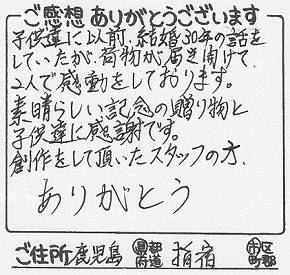 ご感想ありがとうございます
子供達に以前、結婚30年の話を
していたが、荷物が届き開けて、
2人で感動をしております。
素晴らしい記念の贈り物と
子供達に感謝です。
創作をして頂いたスタッフの方、
ありがとう
ご住所 鹿児島 都道府県 指宿 市区町郡